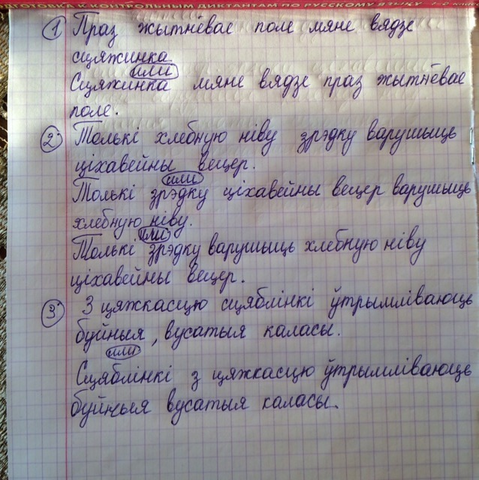 ГОТОВКА К КОНТРОЛЬНЫМ ДИКТАНТАМ ПО РУССКОМУ ЯЗЫКУ
1 Праз жытнёвае поле мяне вядзе
сцяжинка
или
Сцяжинка мяне вядзе праз жытнёвае
поле.
2 Толькі хлебную ніву зрэдку варушыць
ціхавейны вецер.
или
Толькі зрэдку ціхавейны вецер варушыць
хлебную ніву.
или
Толькі зрэдку варушыць хлебную ніву
ціхавейны вецер.
3 З цяжкасцю сцяблінкі ўтрымліваюць
буйныя, вусатыя каласы.
или
Сцяблінкі з цяжкасцю ўтрымліваюць
буйныя вусатыя каласы.